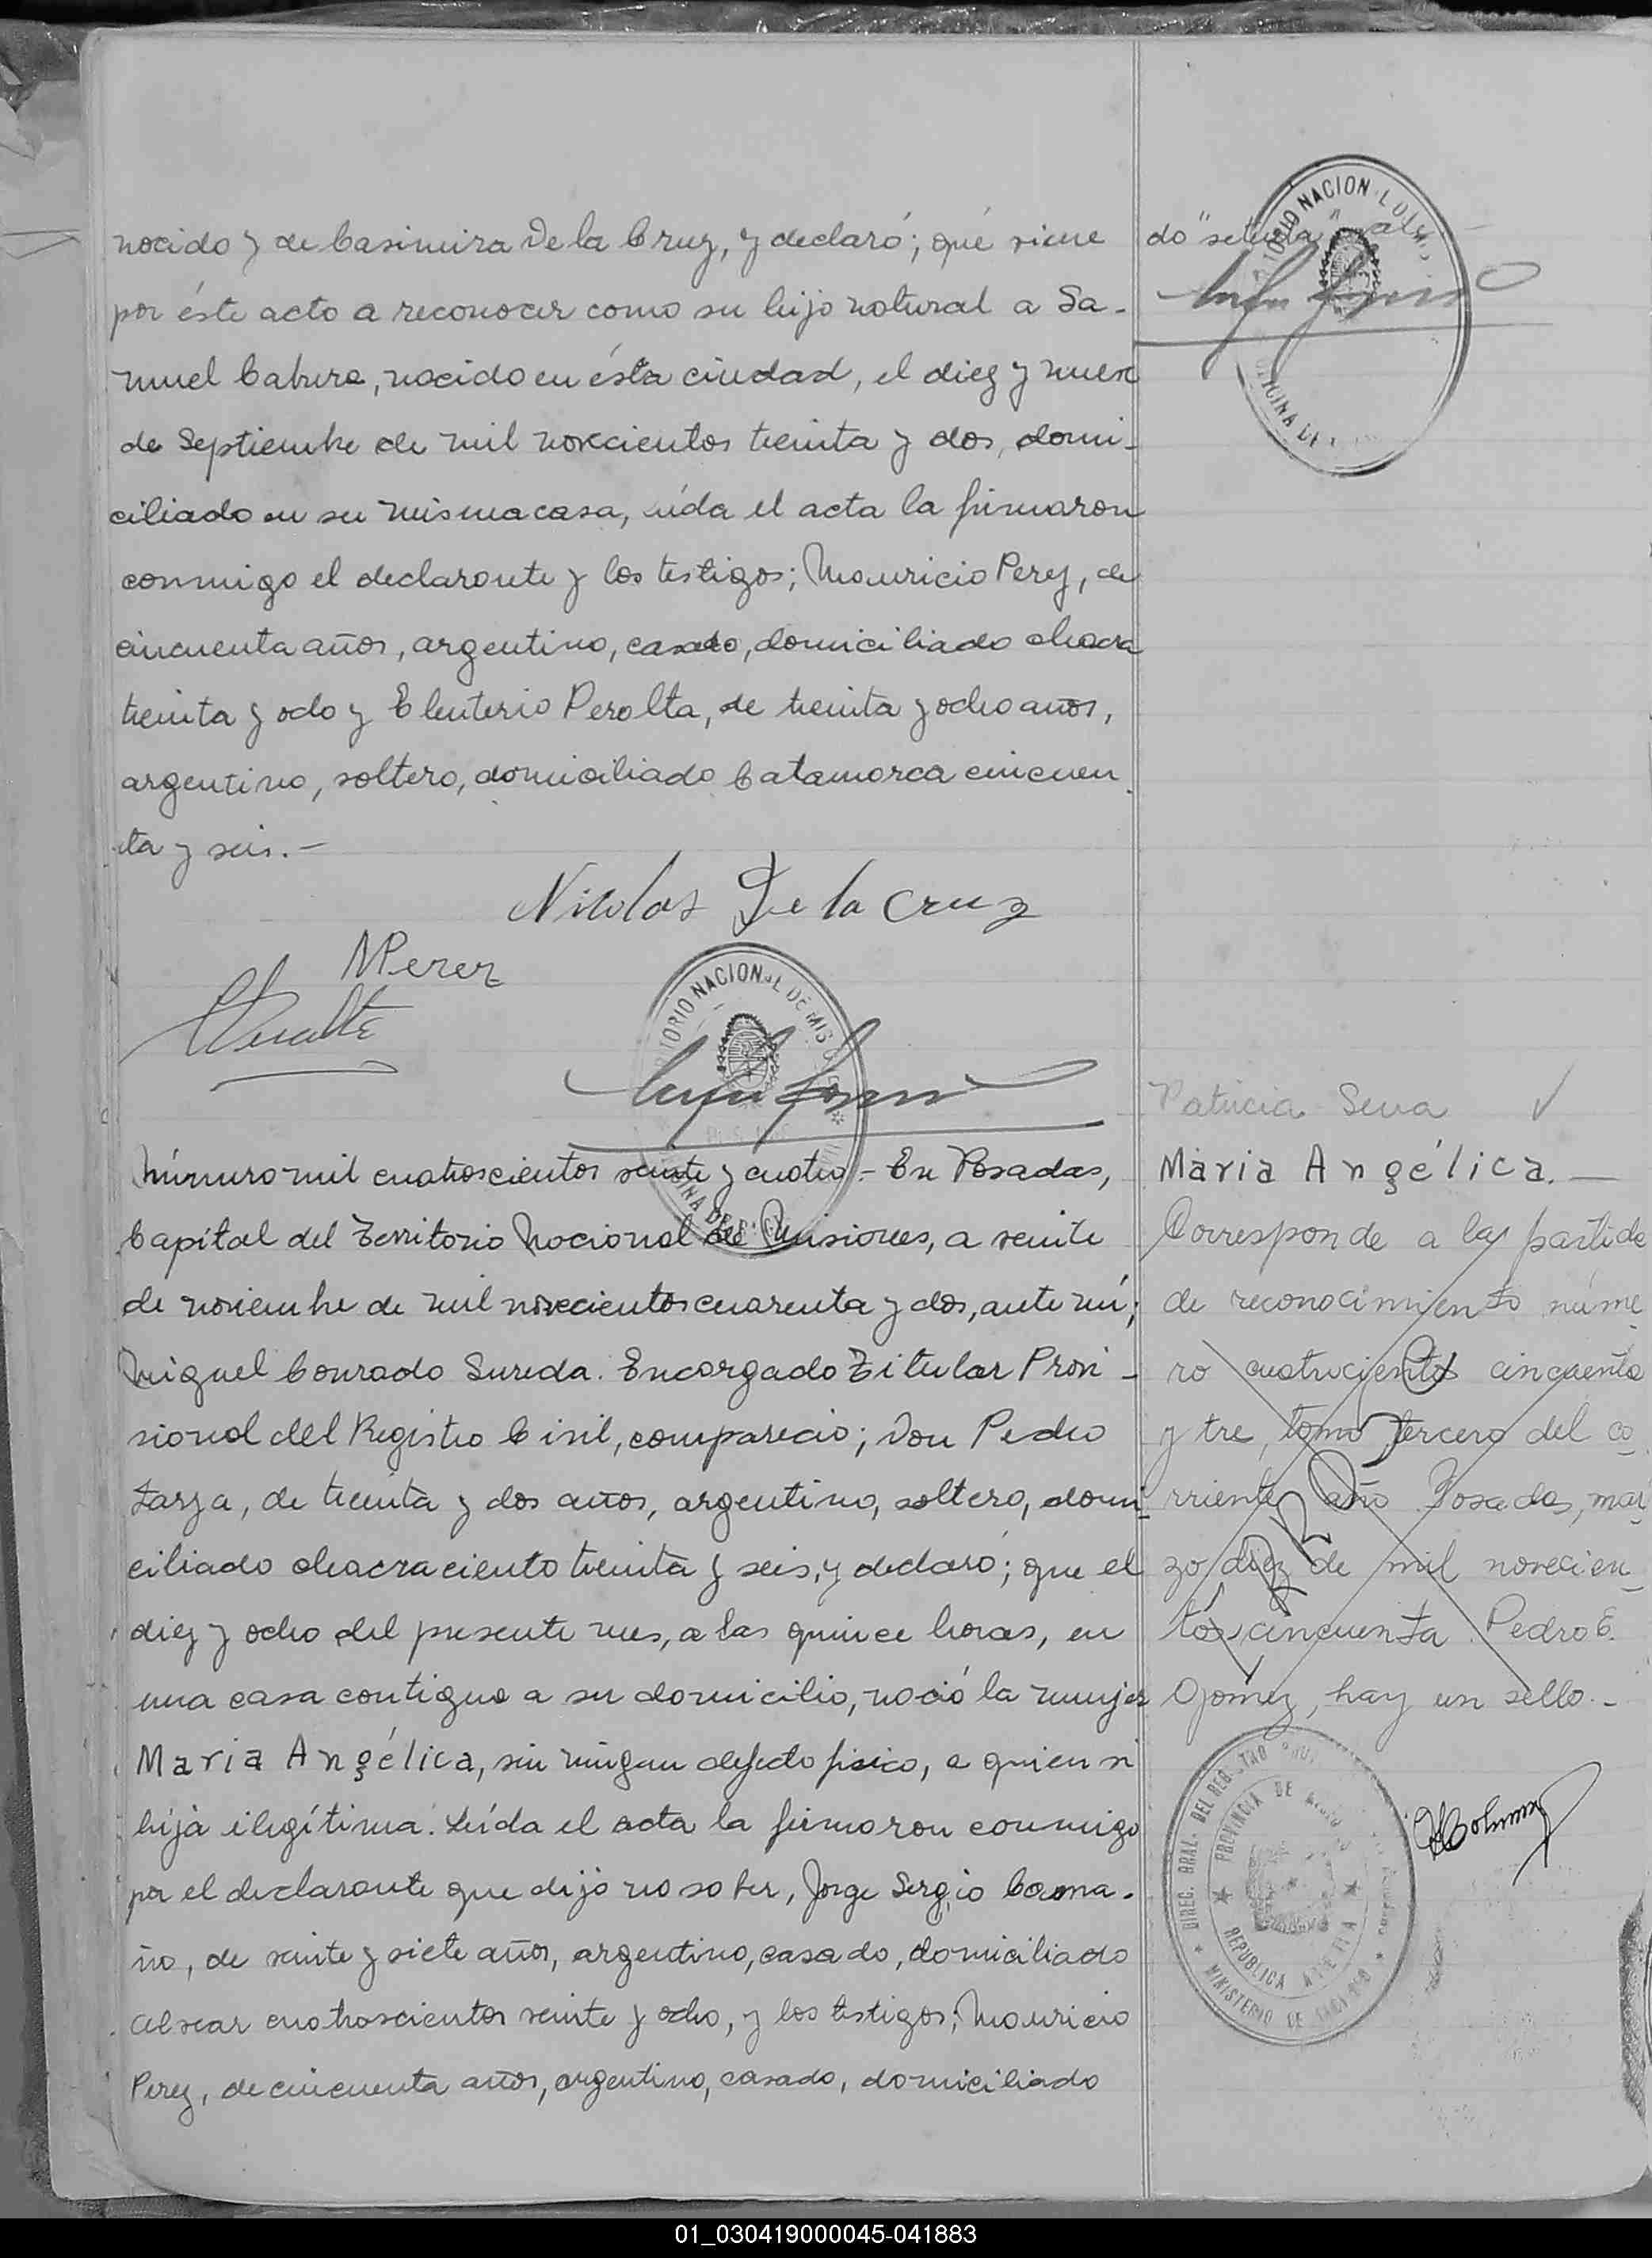 nocido y de Casimira De la Cruz, y declaró; que viene
por éste acto a reconocer como su hijo natural a Sa-
muel Cabura, nacido en ésta ciudad, el diez y nueve
de Septiembre de mil novecientos treinta y dos, domi-
ciliado en su misma casa, leída el acta la firmaron
conmigo el declarante y los testigos; Mauricio Perez, de
cincuenta años, argentino, casado, domiciliado chacra
treinta y ocho y Eleuterio Peralta, de treinta y ocho años,
argentino, soltero, domiciliado Catamarca cincuen
ta y seis.-
Nicolas De la Cruz
MPerez
TORIO NACIONAL DE MIS
Número mil cuatroscientos veinte y cuatro.- En Posadas,
Capital del Territorio Nacional de Misiones, a veinte
de noviembre de mil novecientos cuarenta y dos, ante mí;
Miguel Conrado Sureda. Encargado Titular Provi-
sional del Registro Civil, compareció; Don Pedro
Zarza, de treinta y dos años, argentino, soltero, domi
ciliado chacra ciento treinta y seis, y declaró; que el
diez y ocho del presente mes, a las quince horas, en
una casa contigua a su domicilio, nació la mujer
Maria Angélica, sin ningun defecto fisico, a quien
hija ilegítima. Leída el acta la firmaron conmigo
por el declarante que dijo no saber, Jorge Sergio Caama-
ño, de veinte y siete años, argentino, casado, domiciliado
Alvear cuatroscientos veinte y ocho, y los testigos; Mauricio
Perez, de cincuenta años, argentino, casado, domiciliado
do "setenta"
TORIO NACION
OFICINA DE
Patricia
Maria Angélica.-
Corresponde a la partida
de reconocimiento núme
ro cuatrocientos cincuenta
y tre, tomo tercero del co
rriente año Posadas, mar
zo diez de mil novecien
tos cincuenta. Pedro E.
Gomez, hay un sello.-
ERROR
DIREC. GRAL. DEL REG
PROVINCIA DE
REPUBLICA
MINISTERIO DE
01_030419000045-041883